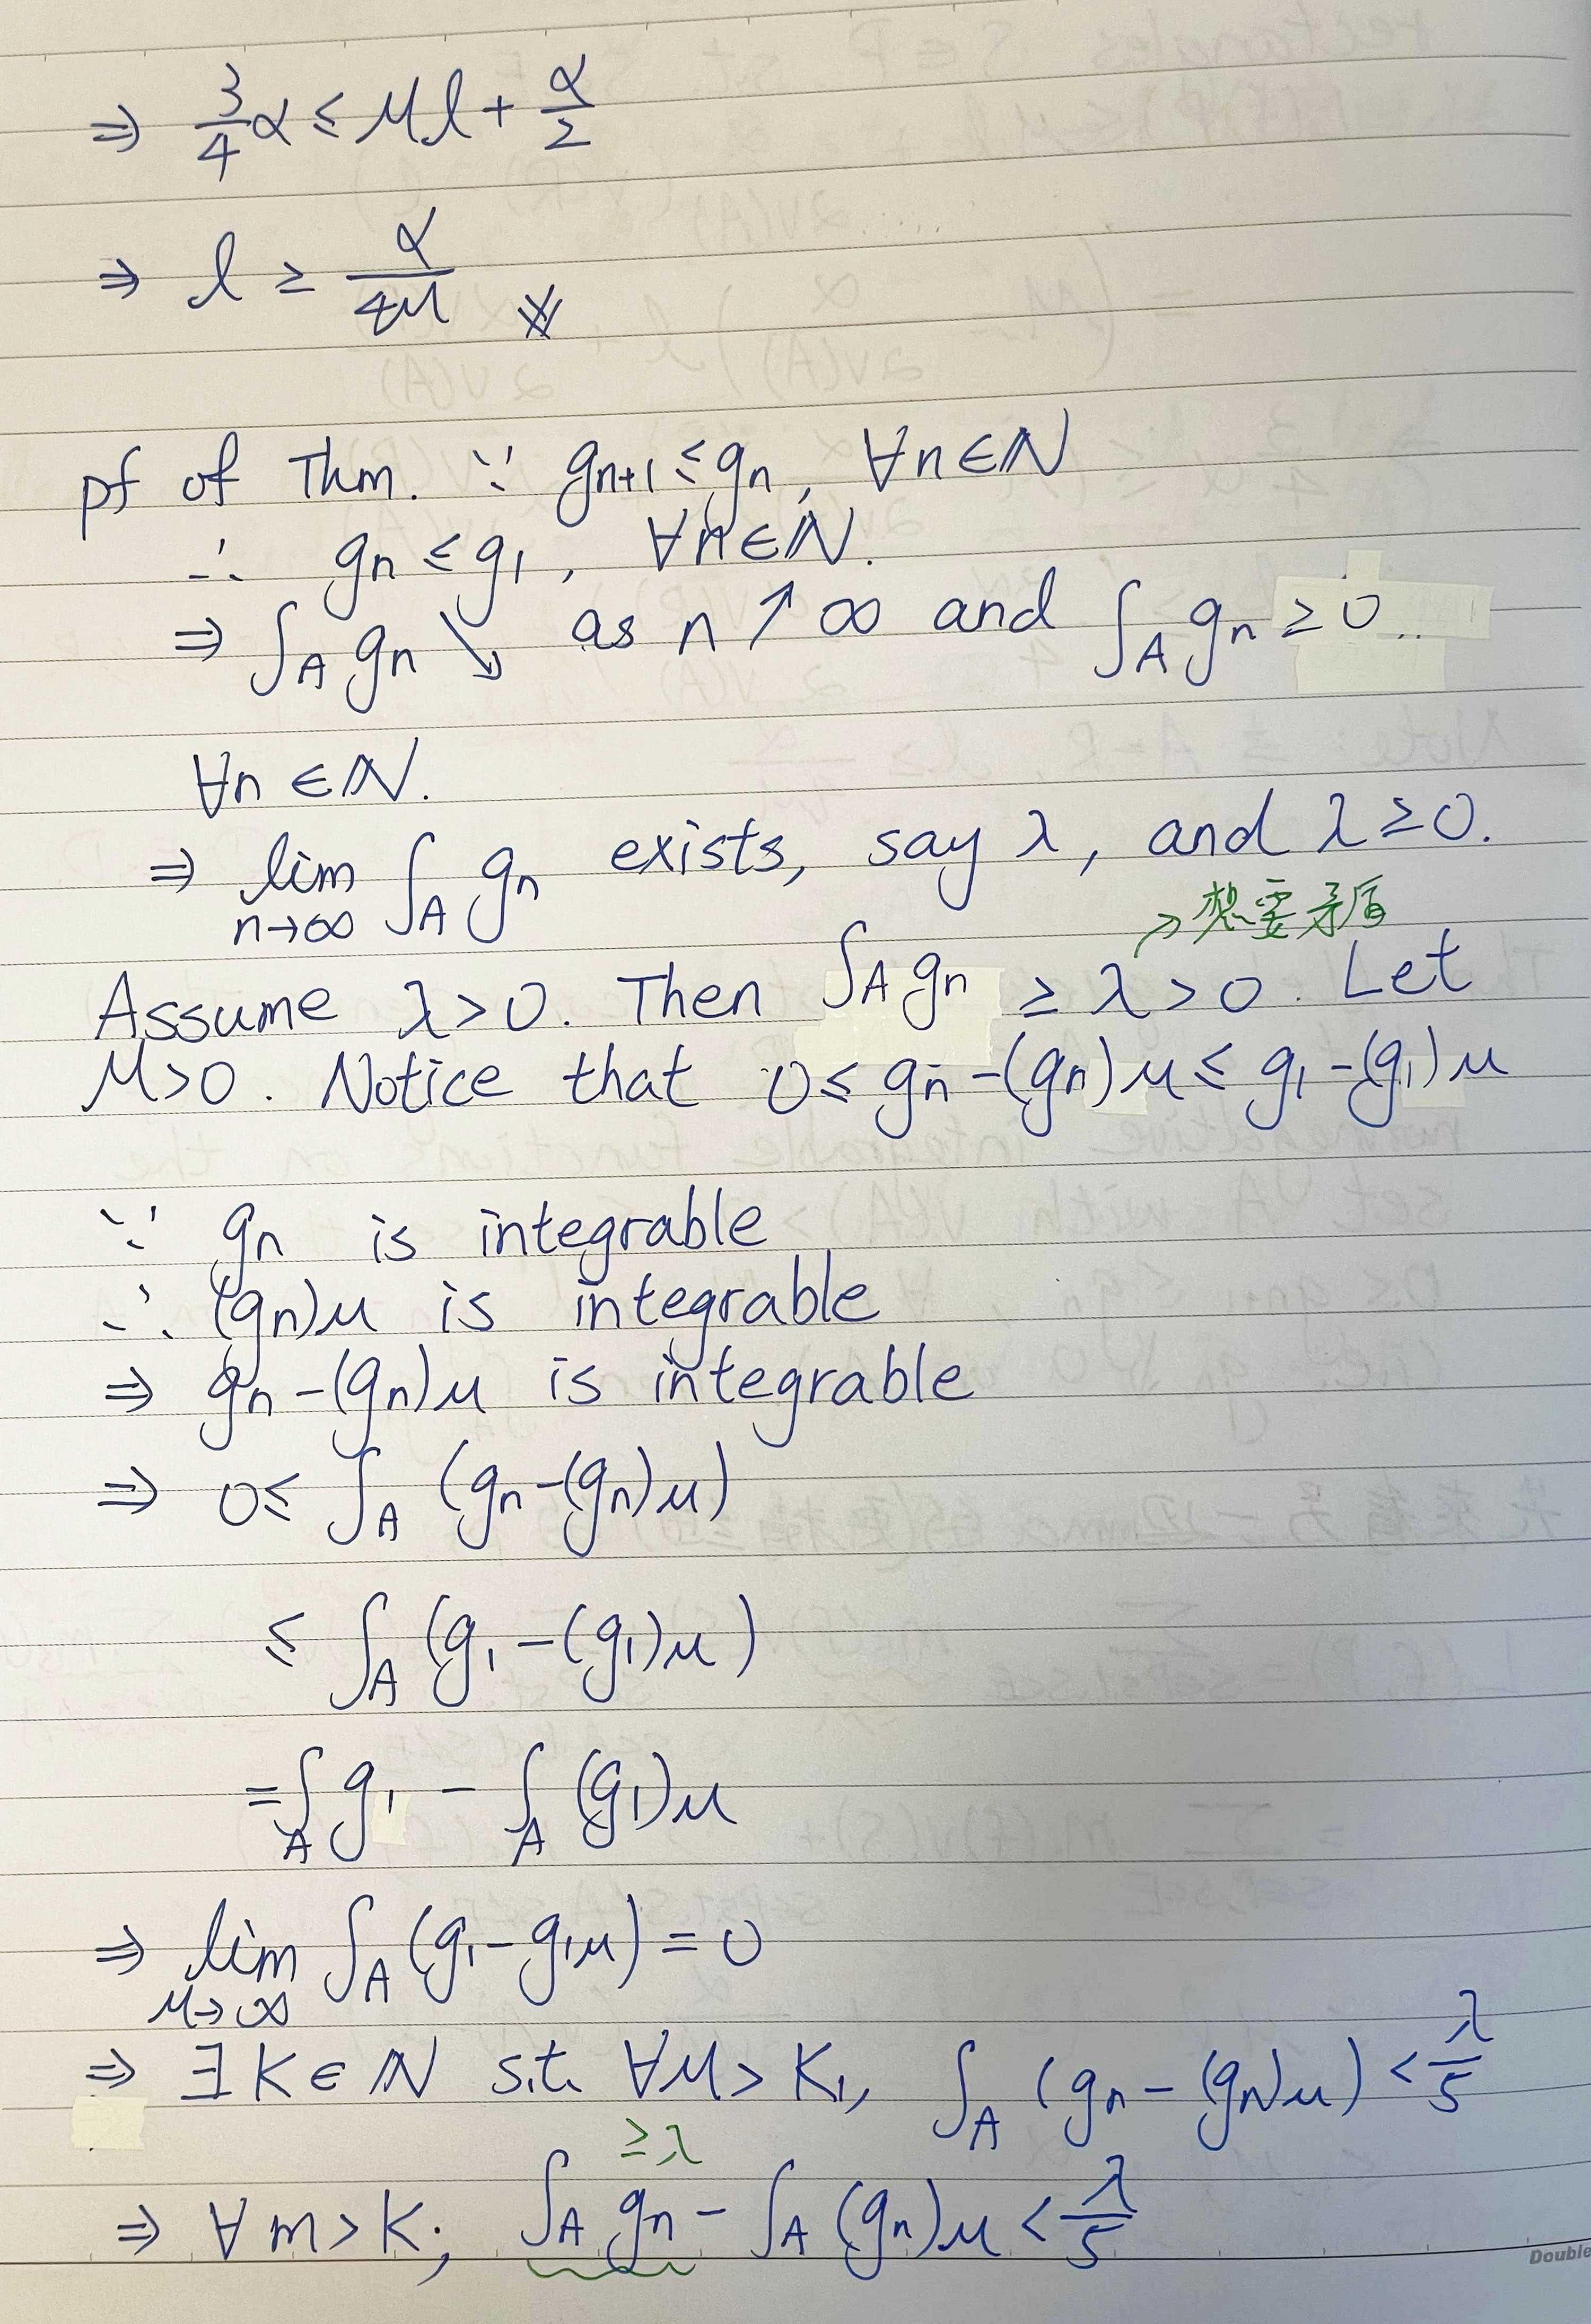 ⇒ 3/4 α ≤ Ml + α/2
⇒ l ≥ α/4M ※
pf of Thm. ∵ gn+1 ≤ gn, ∀n∈ℕ
∴ gn ≤ g1, ∀n∈ℕ.
⇒ ∫A gn ↘ as n ↗ ∞ and ∫A gn ≥ 0
∀n∈ℕ.
⇒ lim n→∞ ∫A gn exists, say λ, and λ ≥ 0.
→ 想要矛盾
Assume λ > 0. Then ∫A gn ≥ λ > 0. Let
M > 0. Notice that 0 ≤ gn - (gn)M ≤ g1 - (g1)M
∵ gn is integrable
∴ (gn)M is integrable
⇒ gn - (gn)M is integrable
⇒ 0 ≤ ∫A (gn - (gn)M)
≤ ∫A (g1 - (g1)M)
= ∫A g1 - ∫A (g1)M
⇒ lim M→∞ ∫A (g1 - g1M) = 0
⇒ ∃K∈ℕ s.t. ∀M > K1, ∫A (gn - (gn)M) < λ/5
≥ λ
⇒ ∀m > K; ∫A gn - ∫A (gn)M < λ/5
Double